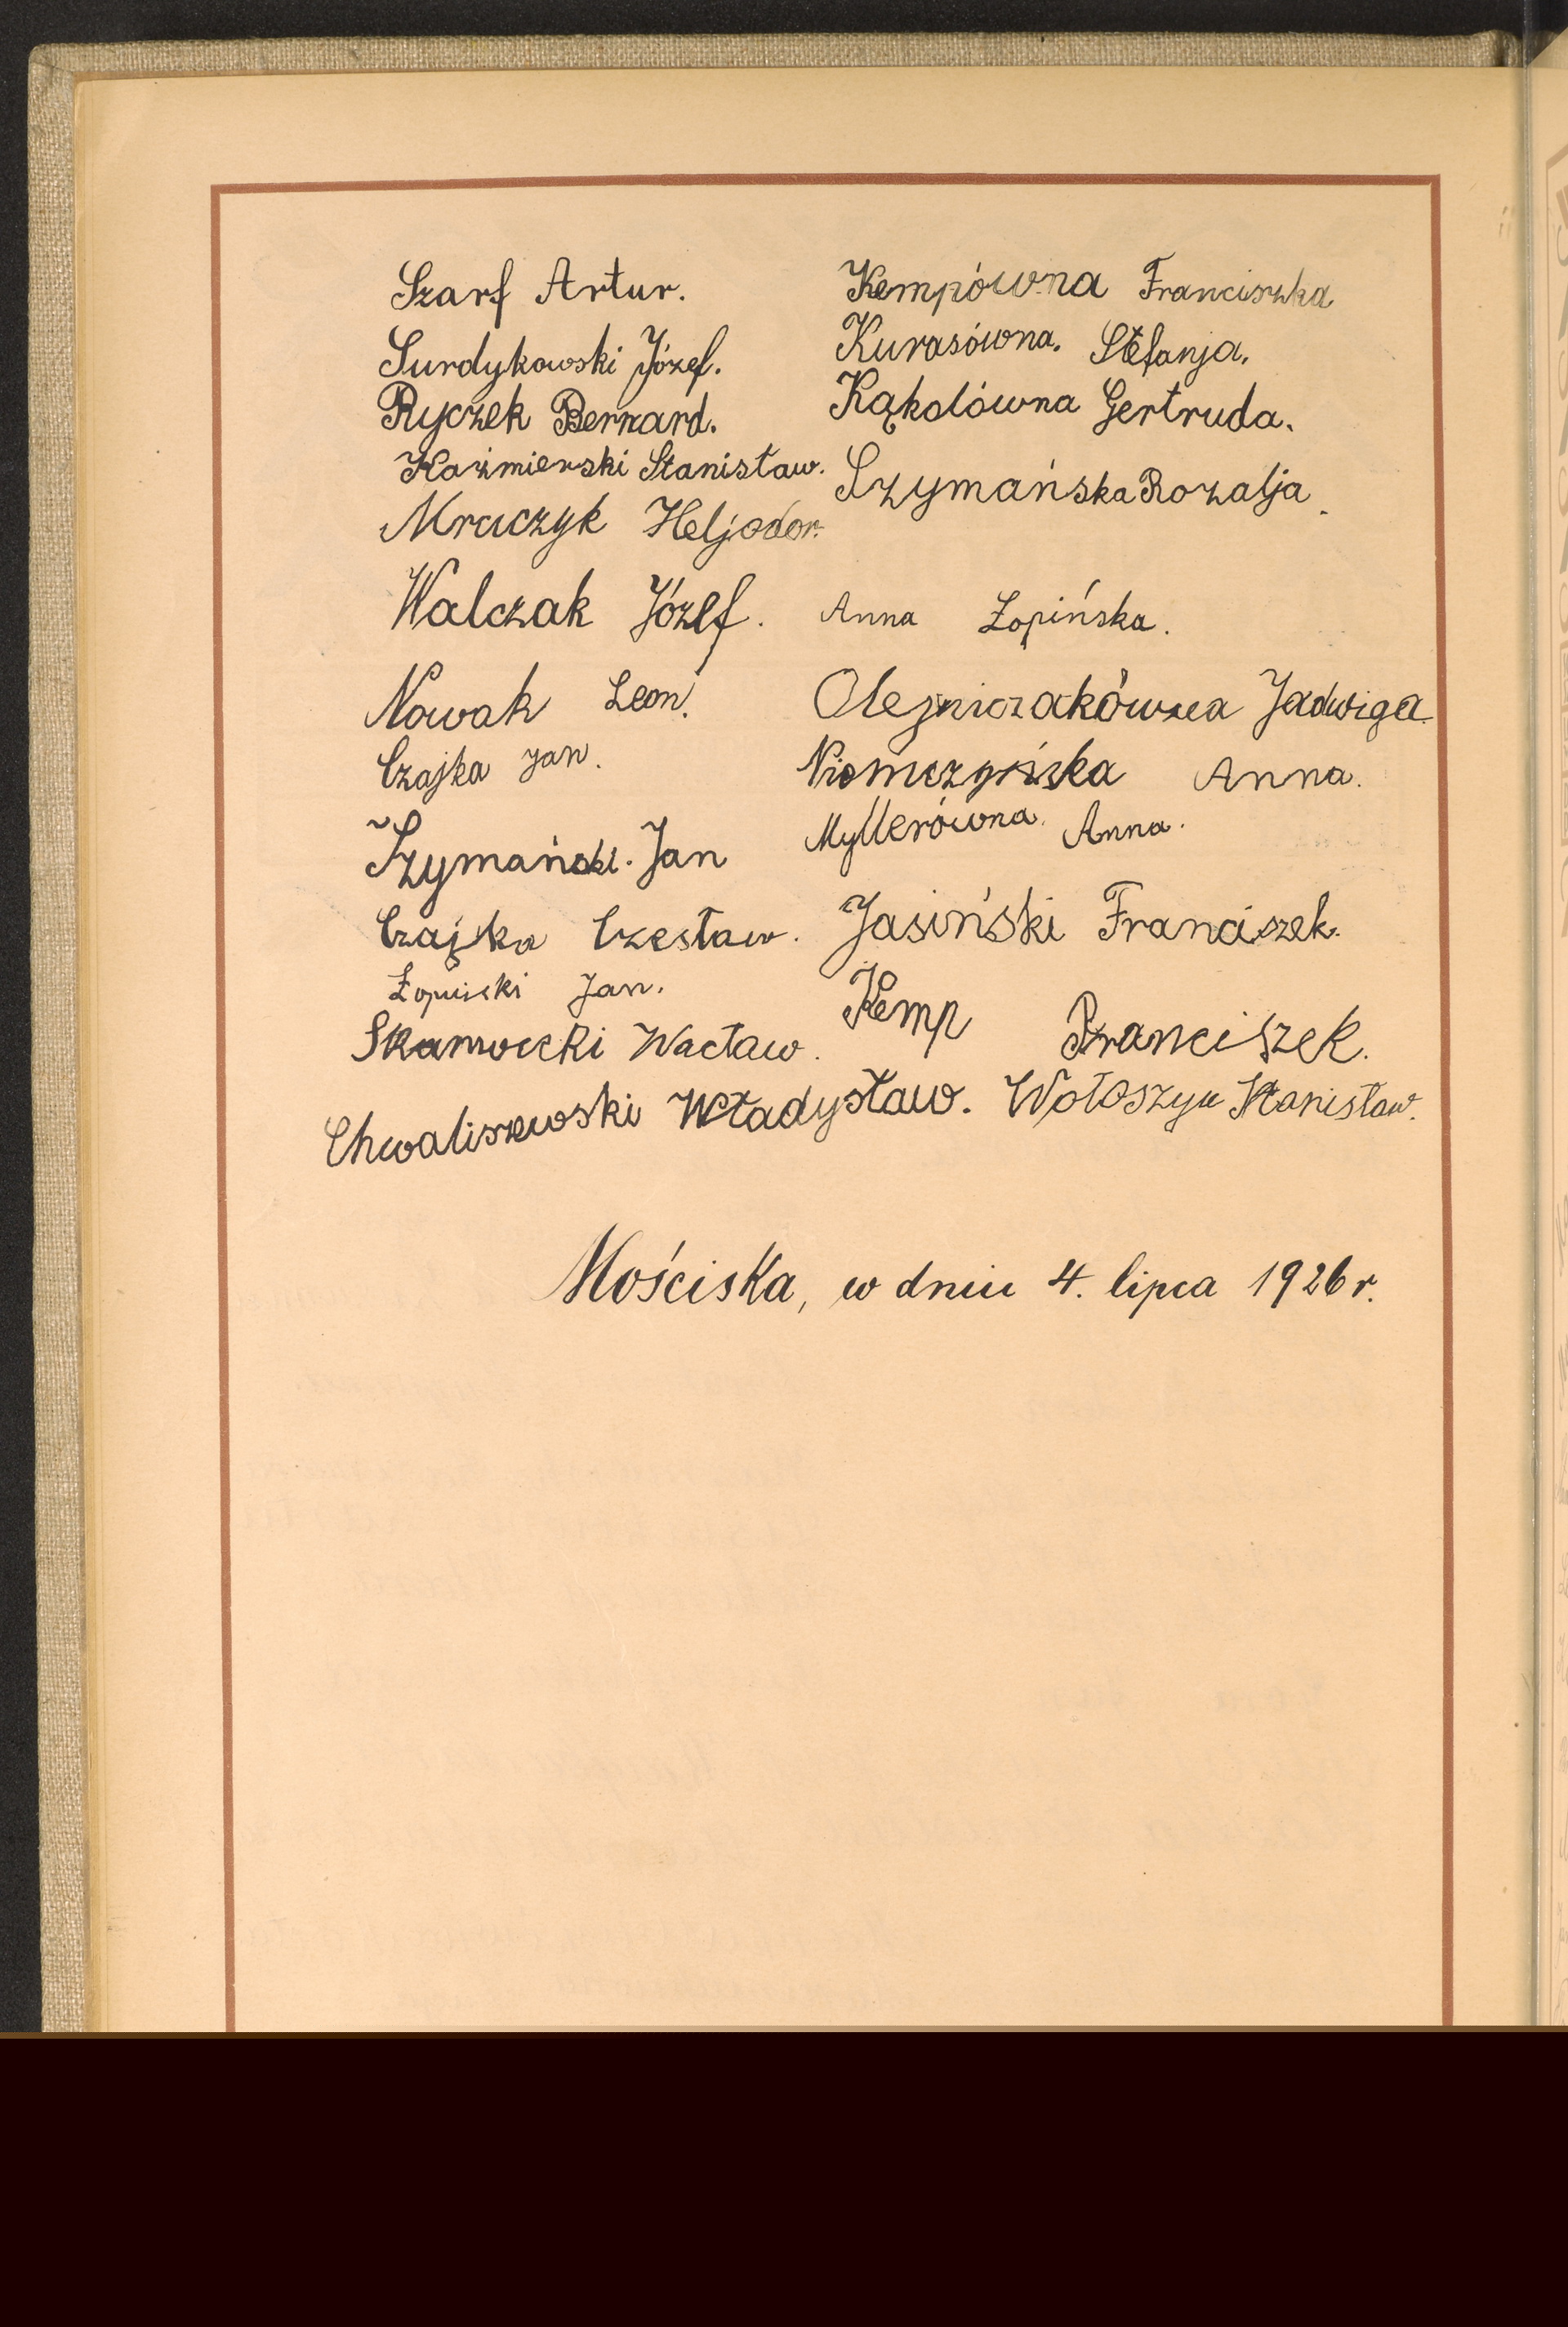 Szarf Artur.
Surdykowski Józef.
Ryczek Bernard.
Kaźmierski Stanisław.
Mraczyk Heljodor.
Walczak Józef.
Nowak Leon.
Czajka Jan.
Szymański Jan
Czajka Czesław.
Łopiński Jan.
Wacław.
Chwaliszewski Władysław.
Kempówna Franciszka
Kurasówna. Stefanja.
Kąkolówna Gertruda.
Szymańska Rozalja.
Anna Łopińska.
Olejniczakówna Jadwiga.
Niemczyńska Anna.
Myllerówna. Anna.
Jasiński Franciszek.
Kemp Franciszek.
Wołoszyn Stanisław.
Mościska, w dniu 4. lipca 1926 r.